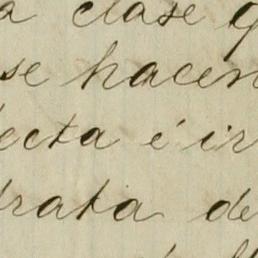 a clase q
se hacen
ecta é ir
trata de